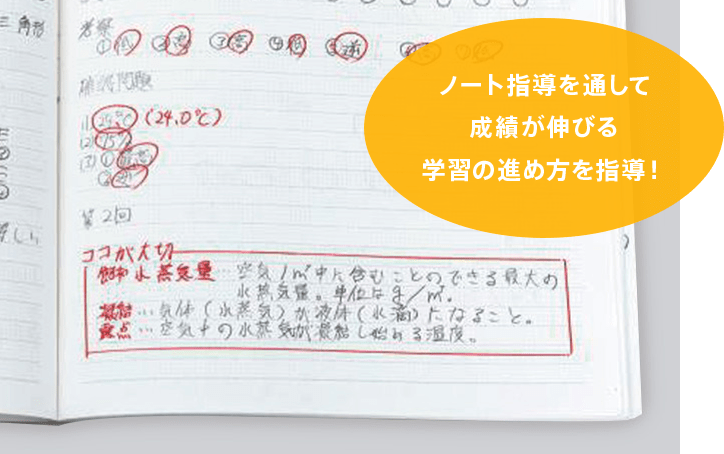 三角形
考察
①低 ②高 ③高 ④低 ⑤逆
練習問題
(1) 24℃ (24.0℃)
(2) 75%
(3) ①
②
第2回
ココが大切
飽和水蒸気量…空気1m³中に含むことのできる最大の
水蒸気量。単位はg/m³。
凝結…気体(水蒸気)が液体(水滴)になること。
露点…空気中の水蒸気が凝結し始める温度。
ノート指導を通して
成績が伸びる
学習の進め方を指導!